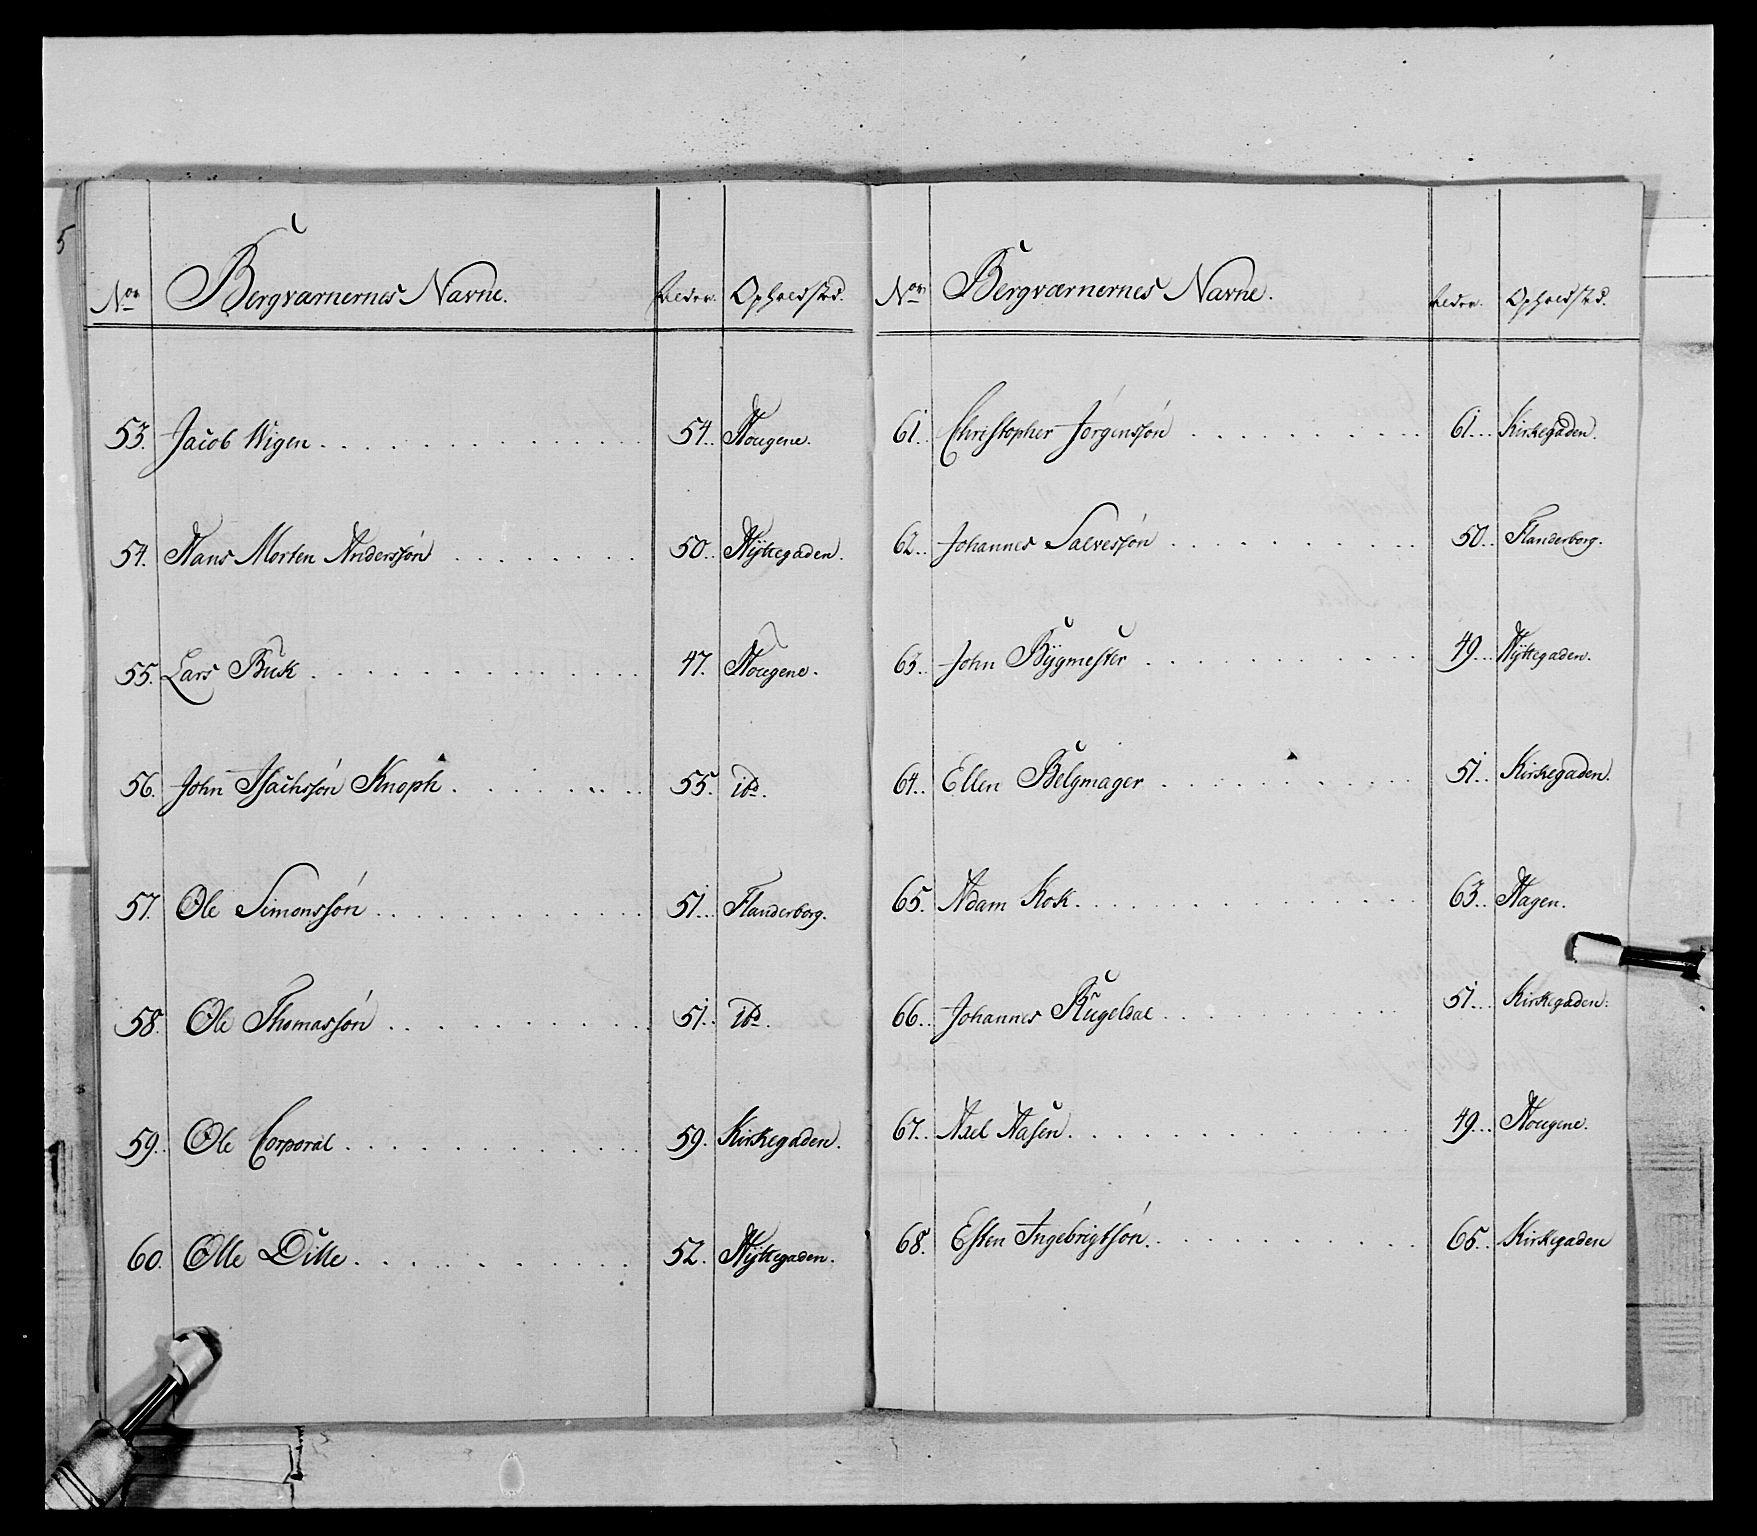 Nor Bergværnernes Navne. Alder. Opholdsted.
53. Jacob Wigen 54. Hougene.
54. Hans Morten Anderssøn 50. Hÿttegaden.
55. Lars Buk 47. Hougene.
56. John Isachssøn Knoph 55. ibd.
57. Ole Simonssøn 51. Flanderborg.
58. Ole Thomassøn 51. ibd.
59. Ole Corporal 59. Kirkegaden.
60. Olle Dille 52. Hÿttegaden.
Nor Bergværnernes Navne. Alder. Opholdsted.
61. Christopher Jørgenssøn 61. Kirkegaden.
62. Johannes Salvessøn 50. Flanderborg.
63. John Bÿgmester 49. Hÿttegaden.
64. Ellen Belgmager 51. Kirkegaden.
65. Adam Kok 63. Hagen.
66. Johannes Kugeldal 51. Kirkegaden.
67. Axel Aasen 49. Hougene.
68. Esten Ingebrigtsøn 65. Kirkegaden